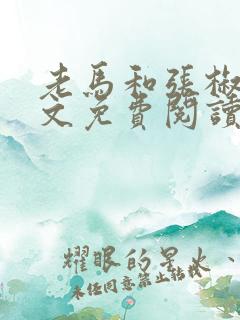 老馬和張椒
文免費閱讀
耀眼的星火、
未經同意禁止轉載